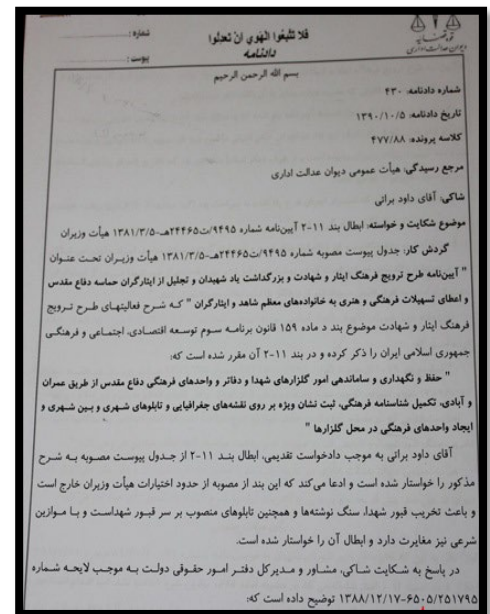 قوه قضاییه
دیوان عدالت اداری
فلا تتبعوا الهوی ان تعدلوا
دادنامه
شماره :
پیوست :
بسم الله الرحمن الرحیم
شماره دادنامه: ۴۳۰
تاریخ دادنامه: ۱۳۹۰/۱۰/۵
کلاسه پرونده: ۴۷۷/۸۸
مرجع رسیدگی: هیأت عمومی دیوان عدالت اداری
شاکی: آقای داود براتی
موضوع شکایت و خواسته: ابطال بند ۱۱-۲ آیین‌نامه شماره ۹۴۹۵/ت۲۴۴۶۵هـ-۱۳۸۱/۳/۵ هیأت وزیران
گردش کار: جدول پیوست مصوبه شماره ۹۴۹۵/ت۲۴۴۶۵هـ-۱۳۸۱/۳/۵ هیأت وزیـران تحـت عنـوان
" آیین‌نامه طرح ترویج فرهنگ ایثار و شهادت و بزرگداشت یاد شهیدان و تجلیل از ایثارگران حماسه دفاع مقدس
و اعطای تسهیلات فرهنگی و هنری به خانواده‌های معظم شاهد و ایثارگران " کـه شـرح فعالیتهـای طـرح تـرویج
فرهنگ ایثار و شهادت موضوع بند د ماده ۱۵۹ قانون برنامـه سـوم توسـعه اقتصـادی، اجتمـاعی و فرهنگـی
جمهوری اسلامی ایران را ذکر کرده و در بند ۱۱-۲ آن مقرر شده است که:
" حفظ و نگهداری و ساماندهی امور گلزارهای شهدا و دفاتر و واحدهای فرهنگی دفاع مقدس از طریق عمران
و آبادی، تکمیل شناسنامه فرهنگی، ثبت نشان ویژه بر روی نقشه‌های جغرافیایی و تابلوهای شـهری و بـین شـهری و
ایجاد واحدهای فرهنگی در محل گلزارها "
آقای داود براتی به موجب دادخواست تقدیمی، ابطال بنـد ۱۱-۲ از جـدول پیوسـت مصـوبه بـه شـرح
مذکور را خواستار شده است و ادعا می‌کند که این بند از مصوبه از حدود اختیارات هیأت وزیران خارج است
و باعث تخریب قبور شهدا، سنگ نوشته‌ها و همچنین تابلوهای منصوب بر سر قبـور شهداسـت و بـا مـوازین
شرعی نیز مغایرت دارد و ابطال آن را خواستار شده است.
در پاسخ به شـکایت شـاکی، مشـاور و مـدیرکل دفتـر امـور حقـوقی دولـت بـه موجـب لایحـه شـماره
۲۵۱۷۹۵/۶۵۰۵-۱۳۸۸/۱۲/۱۷ توضیح داده است که: